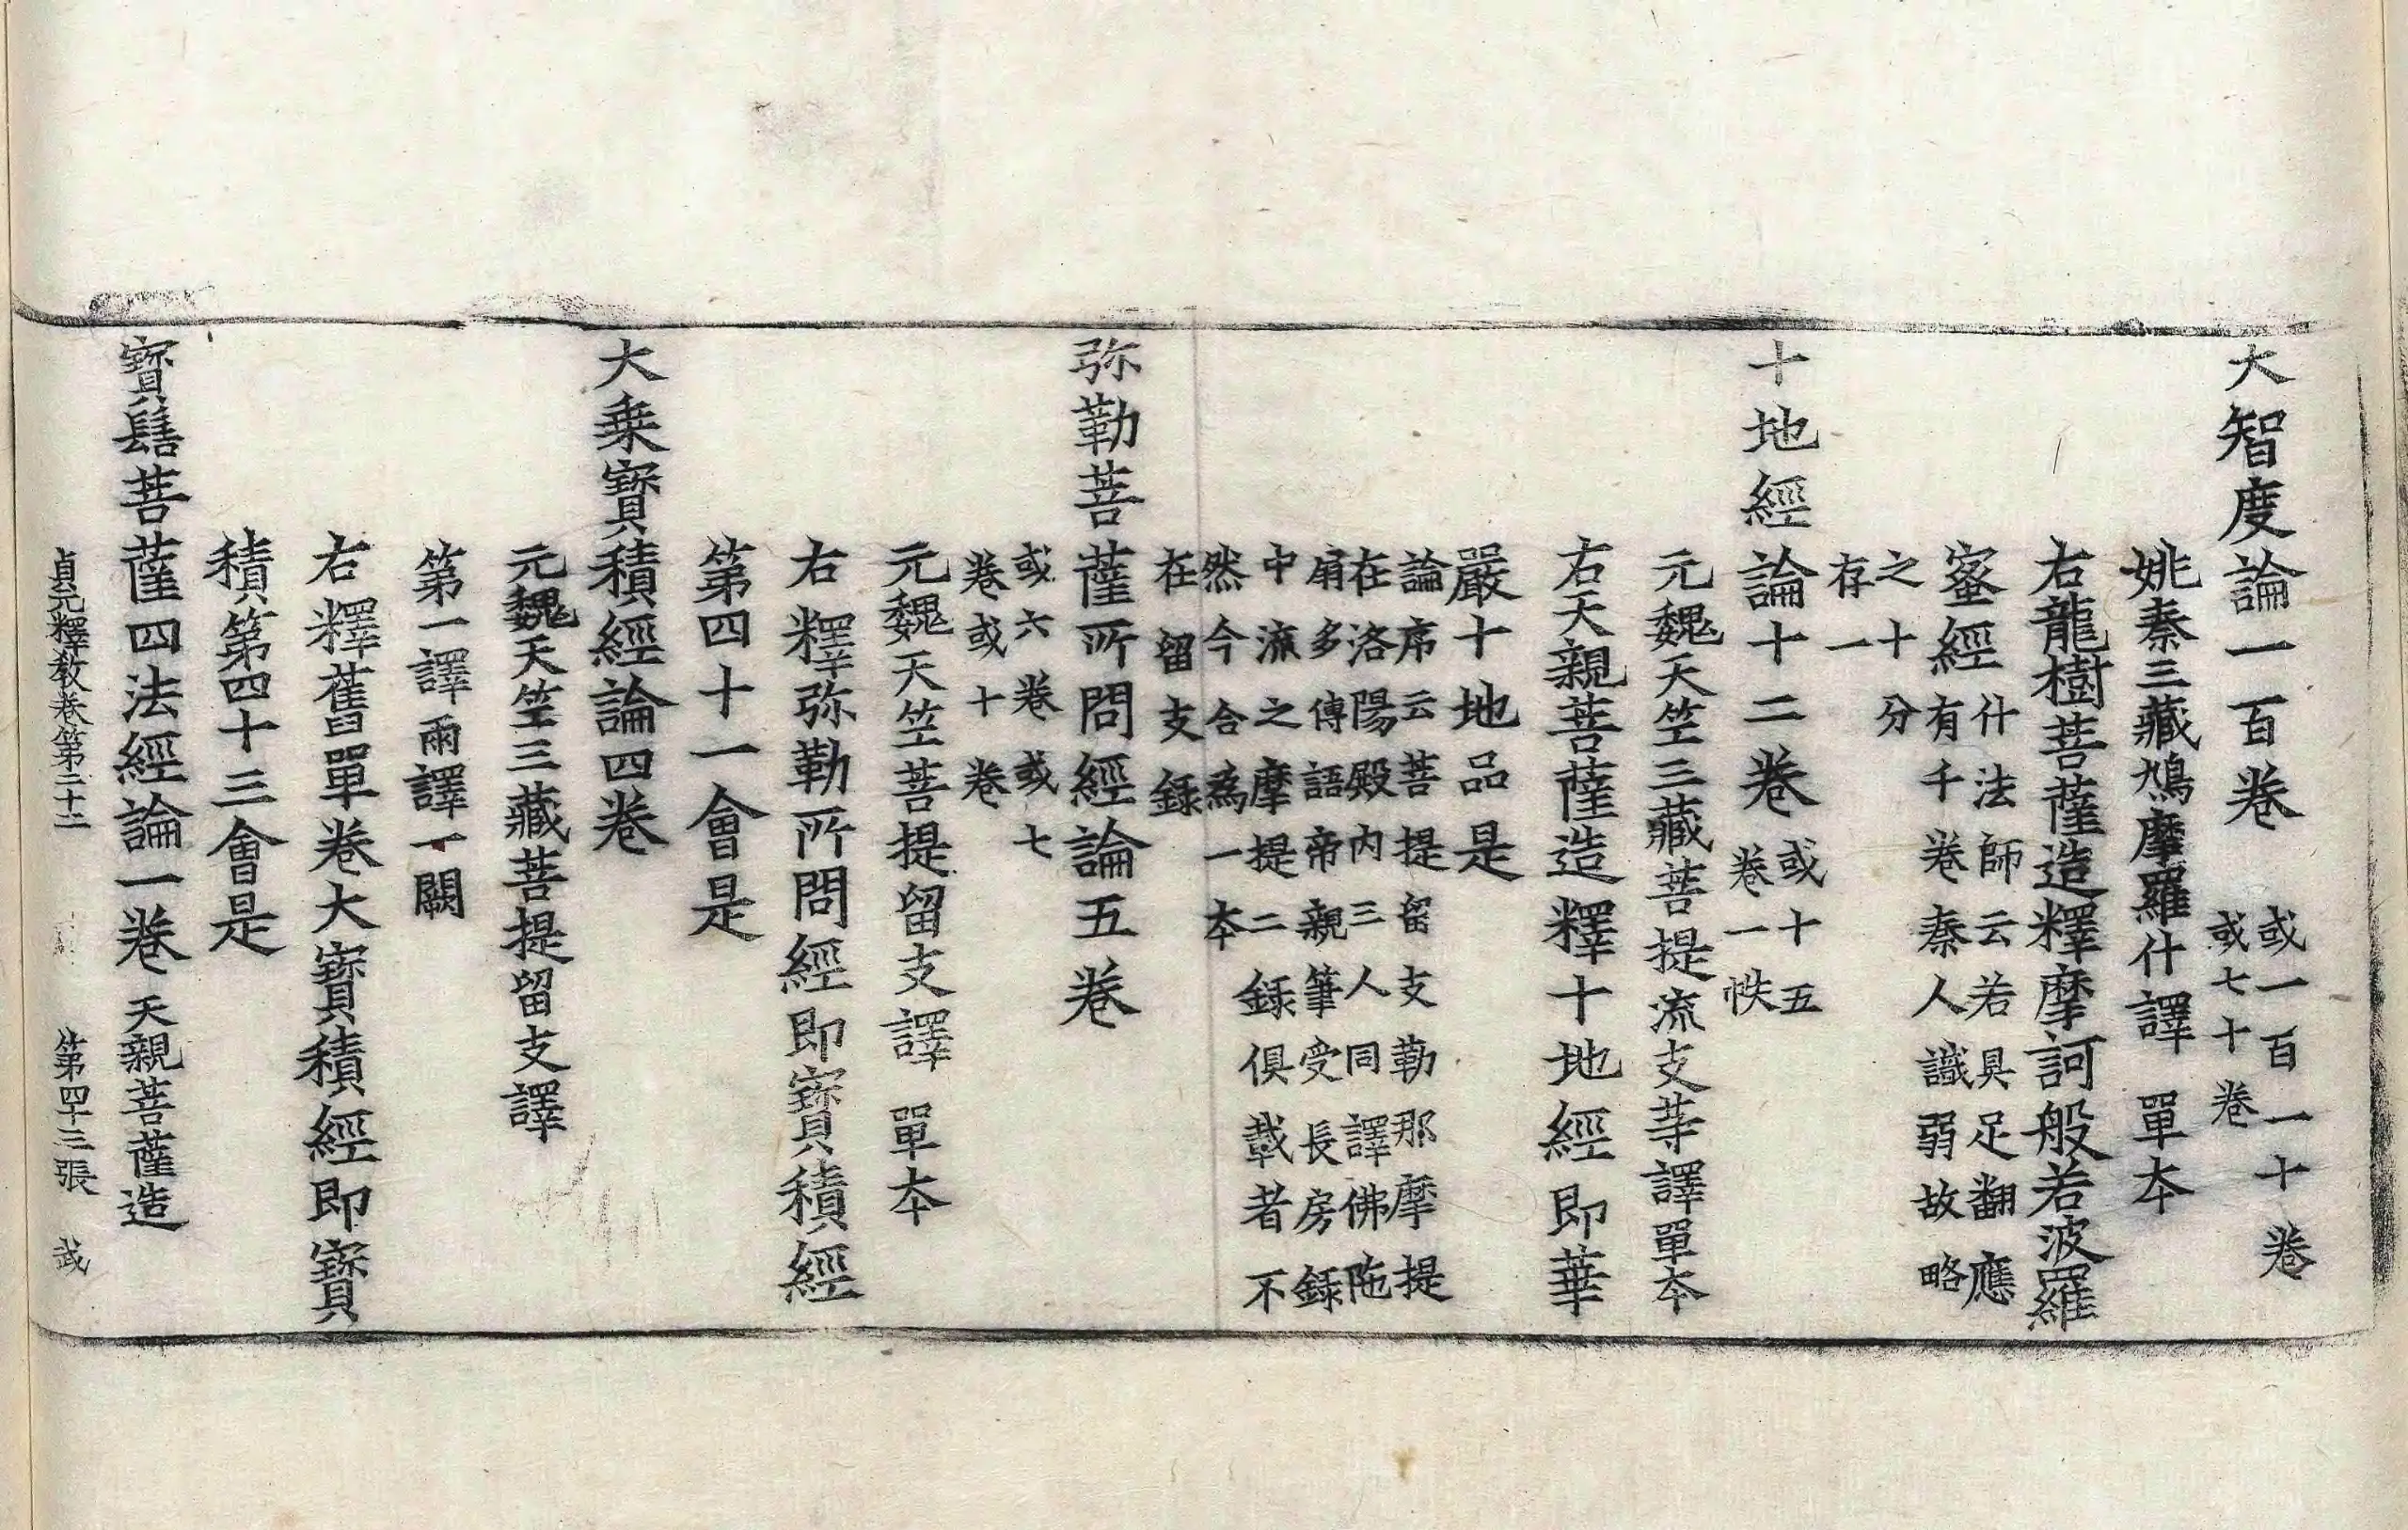 大智度論一百卷 或一百一十卷
或七十卷
姚秦三藏鳩摩羅什譯 單夲
右龍樹菩薩造釋摩訶般若波羅
蜜經 什法師云若具足翻應
有千卷秦人識弱故略
之十分
存一
十地經論十二卷 或十五
卷一帙
元魏天竺三藏菩提流支等譯單夲
右天親菩薩造釋十地經即華
嚴十地品是
論序云菩提留支勒那摩提
在洛陽殿內三人同譯佛陁
扇多傳語帝親筆受長房錄
中流之摩提二錄俱載者不
然今合為一夲
在留支錄
弥勒菩薩所問經論五卷
或六卷或七
卷或十卷
元魏天竺菩提留支譯 單夲
右釋弥勒所問經即寶積經
第四十一會是
大乗寶積經論四卷
元魏天竺三藏菩提留支譯
第一譯兩譯一闕
右釋舊單卷大寶積經即寶
積第四十三會是
寶髻菩薩四法經論一卷 天親菩薩造
貞元釋教卷第二十二 第四十三張 武